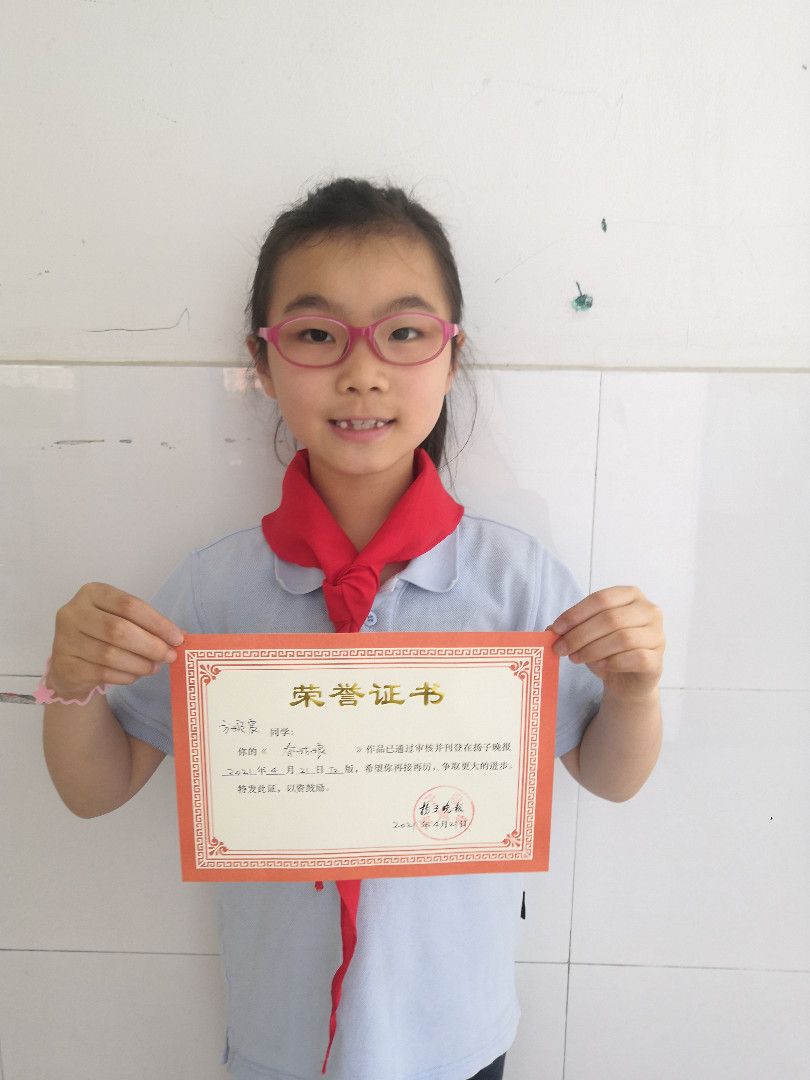 荣誉证书
同学:
你的《 》作品已通过审核并刊登在扬子晚报
2021年4月21日 版,希望你再接再厉,争取更大的进步。
特发此证,以资鼓励。
扬子晚报
2021年4月21日